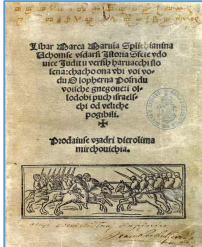 Libar Marca Marula Splichianina
Vchomse vsdarsi Istoria Sfete vdo
uice Iudit u versih haruacchi slo
sena: chacho ona vbi voi vo
du Olopherna Posridu
voische gnegoue: i o
slodobi puch israels
chi od veliche
pogibili.
Prodaiuse vzadri Dierolima
mirchouichia.